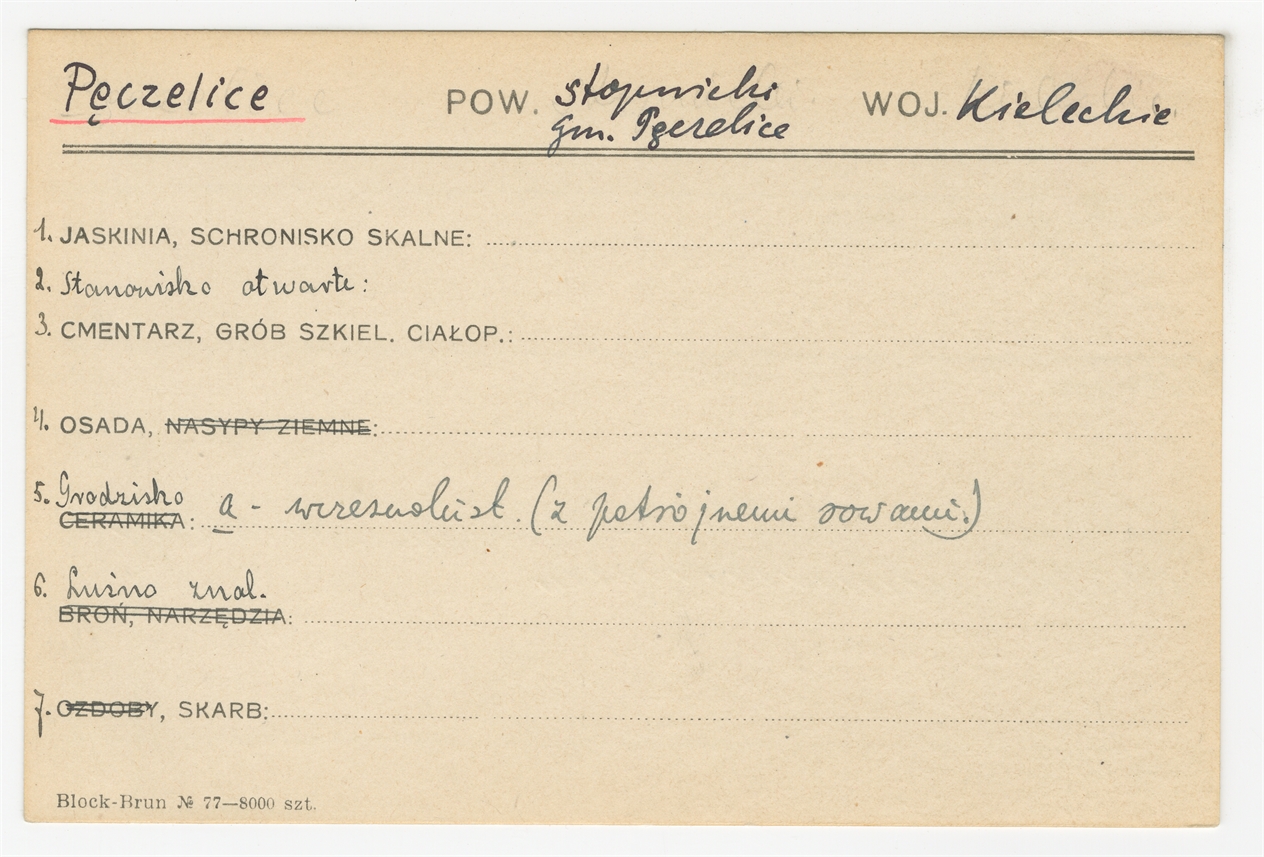 Pęczelice POW. stopnicki WOJ. Kieleckie
gm. Pęczelice
1. JASKINIA, SCHRONISKO SKALNE:
2. Stanowisko otwarte:
3. CMENTARZ, GRÓB SZKIEL. CIAŁOP.:
4. OSADA, NASYPY ZIEMNE:
5. Grodzisko a - wczesnohist. (z potrójnemi rowami.)
CERAMIKA:
6. Luźno znal.
BROŃ, NARZĘDZIA:
7. OZDOBY, SKARB:
Block-Brun № 77—8000 szt.